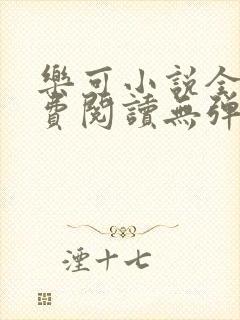 樂可小說全
費閱讀無彈
湮十七